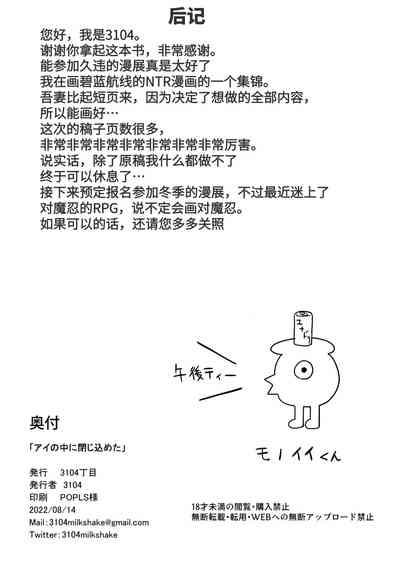 后记
您好，我是3104。
谢谢你拿起这本书，非常感谢。
能参加久违的漫展真是太好了
我在画碧蓝航线的NTR漫画的一个集锦。
吾妻比起短页来，因为决定了想做的全部内容，
所以能画好…
这次的稿子页数很多，
非常非常非常非常非常非常非常厉害。
说实话，除了原稿我什么都做不了
终于可以休息了…
接下来预定报名参加冬季的漫展，不过最近迷上了
对魔忍的RPG，说不定会画对魔忍。
如果可以的话，还请您多多关照
午後ティー
モノイイくん
奥付
「アイの中に閉じ込めた」
発行　3104丁目
発行者　3104
印刷　POPLS様
2022/08/14
Mail:3104milkshake@gmail.com
Twitter:3104milkshake
18才未満の閲覧・購入禁止
無断転載・転用・WEBへの無断アップロード禁止